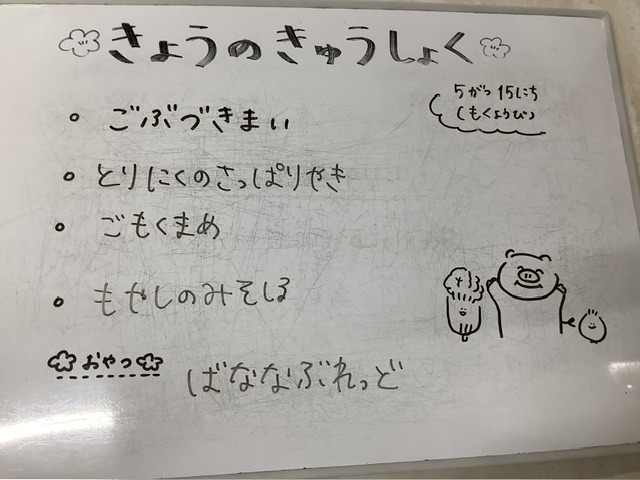 きょうのきゅうしょく
5がつ 15にち
(もくようび)
・ごぶづきまい
・とりにくのさっぱりやき
・ごもくまめ
・もやしのみそしる
おやつ
ばななぶれっど